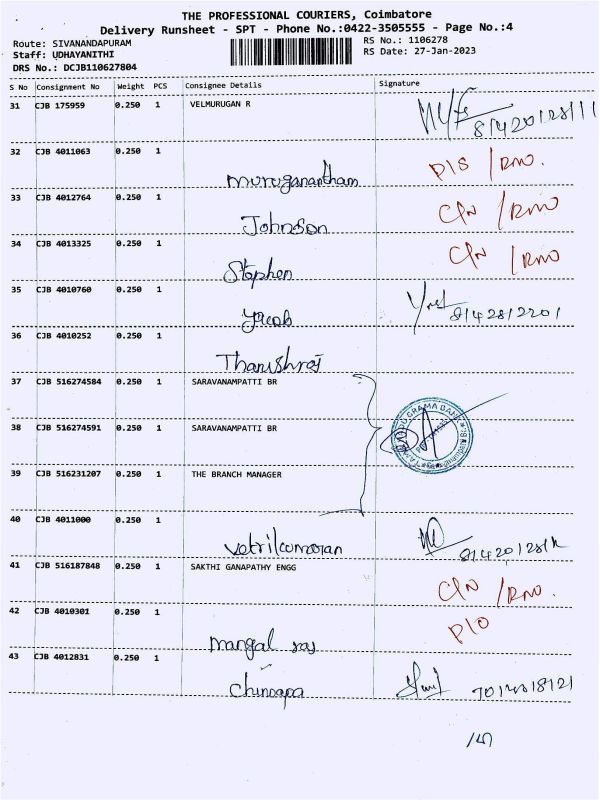 THE PROFESSIONAL COURIERS, Coimbatore
Delivery Runsheet - SPT - Phone No.:0422-3505555 - Page No.:4
Route: SIVANANDAPURAM
Staff: UDHAYANITHI
DRS No.: DCJB110627804
RS No.: 1106278
RS Date: 27-Jan-2023
S No Consignment No Weight PCS Consignee Details Signature
31 CJB 175959 0.250 1 VELMURUGAN R
32 CJB 4011063 0.250 1 P/S /RNO.
muruganantham
33 CJB 4012764 0.250 1 C/N /RNO
Johnson
34 CJB 4013325 0.250 1 C/N /RNO
Stephen
35 CJB 4010760 0.250 1
Jacob
36 CJB 4010252 0.250 1
Tharushraj
37 CJB 516274584 0.250 1 SARAVANAMPATTI BR
38 CJB 516274591 0.250 1 SARAVANAMPATTI BR
GRAMA BANK
39 CJB 516231207 0.250 1 THE BRANCH MANAGER
40 CJB 4011000 0.250 1
Vetrikumaran
41 CJB 516187848 0.250 1 SAKTHI GANAPATHY ENGG C/N /RNO.
42 CJB 4010301 0.250 1 P/O
mangal raj
43 CJB 4012831 0.250 1
Chinnapa